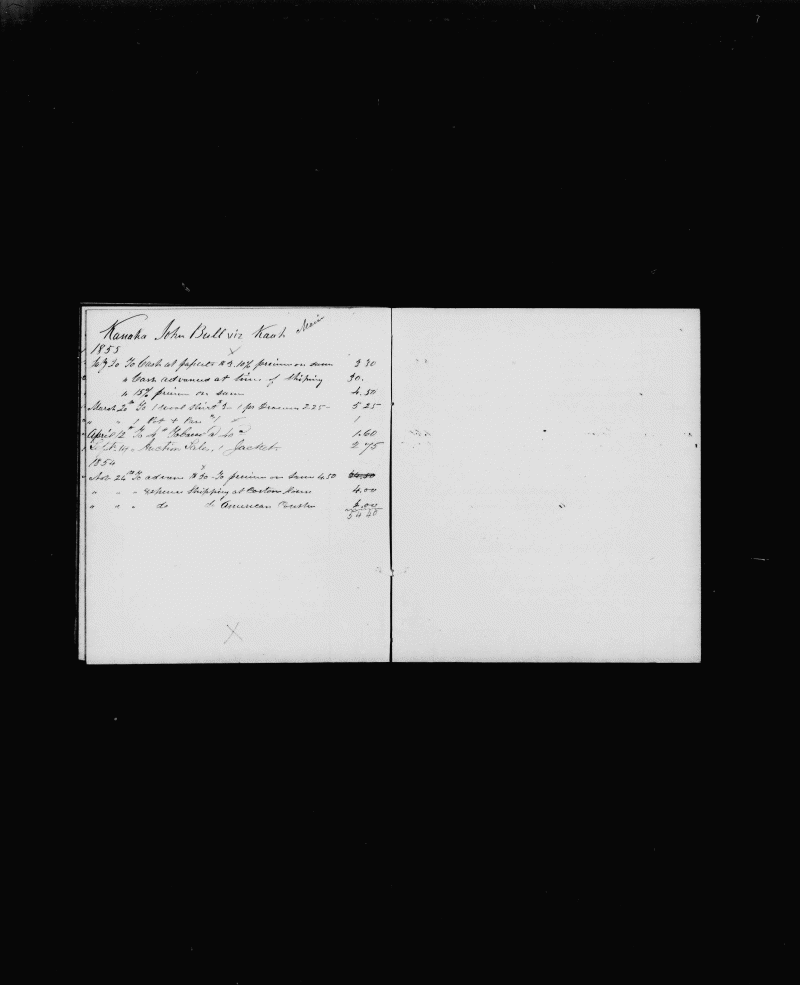 Kanaka John Bull viz Kaah Maui
1855
To Cash at papeete $3. 10% premium on sum 3 30
" Cash advanced at time of Shipping 30.
" 15% premium on sum 4.50
March 20th To 1 wool Shirt 1 pr Drawers 2.25 5 25
" " 1 Pot + Pan 1
April 12th To 4 lb Tobacco 1.60
Sept. Auction Sales, 1 Jacket 2 75
1854
24th To advance $30 To premium on sum 4.50
" " " expense Shipping at Custom House 4.00
" " " do do American Consul 2.00
54 40